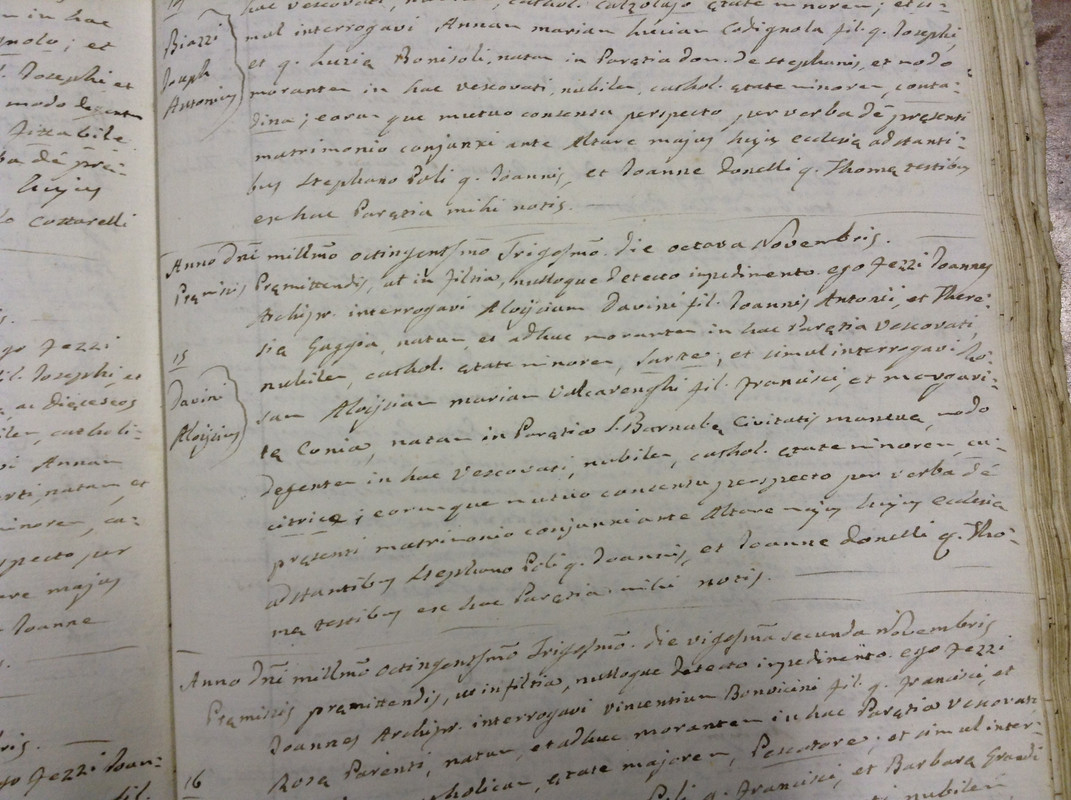 in hac
gnolo; et
Josephi et
modo degentem
Fixabile
ba dē prę-
hujus
Costarelli
Fezzi
fil. Josephi, et
ac Dięceseos
catholi-
Annam
natam et
minorem, ca-
perspecto per
majus
Joanne
Fezzi Joan-
fil.
Biazzi
Joseph
Antonius
hac Vescovati, cathol. calzolajo ętate minorem; et si-
mul interrogavi Annam mariam Luciam Codignola fil. q. Josephi,
et q. Lucię Bonisoli, natam in Parętia Dom. de Stephanis, et modo
morantem in hac Vescovati, nubilem, cathol. ętate minorem, conta-
dina; eorumque mutuo consensu perspecto, per verba dē pręsenti
matrimonio conjunxi ante Altare majus hujus ecclesię adstanti-
bus Stephano Poli q. Joannis, et Joanne Donelli q. Thomę testibus
ex hac Parętia mihi notis.
15
Davini
Aloijsius
Anno Dnī millmō octingentsmō Trigesmō. die octava Novembris.
Pręmissis Pręmittendis, ut in filzia, nulloque Detecto impedimento. ego Fezzi Joannes
Archipr. interrogavi Aloijsium Davini fil. Joannis Antonii, et There-
się Gaggia, natum, et adhuc morantem in hac Parętia Vescovati,
nubilem, cathol. ętate minorem, Sarte; et simul interrogavi
sam Aloijsiam mariam Valcarenghi fil. Francisci, et margari-
tę Conia, natam in Parętia S. Barnabę Civitatis mantuę, modo
degentem in hac Vescovati, nubilem, cathol. ętate minorem, cu-
citrice; eorumque mutuo consensu perspecto per verba dē
pręsenti matrimonio conjunxi ante Altare majus hujus ecclesię
adstantibus Stephano Poli q. Joannis, et Joanne Donelli q. Tho-
mę testibus ex hac Parętia mihi notis.
16
Anno Dnī millmō octingentsmō Trigesmō. die vigesmā secunda Novembris
Pręmissis pręmittendis, ut in filtia, nulloque detecto impedimento. ego Fezzi
Joannes Archipr. interrogavi vincentium Bonvicini fil. q. Francisci, et
Rosę Parenti, natum, et adhuc morantem in hac Parętia Vescovati
catholicum, ętate majorem, Pescatore; et simul inter-
Poli q. Francisci, et Barbarę Grandi
nubilem,